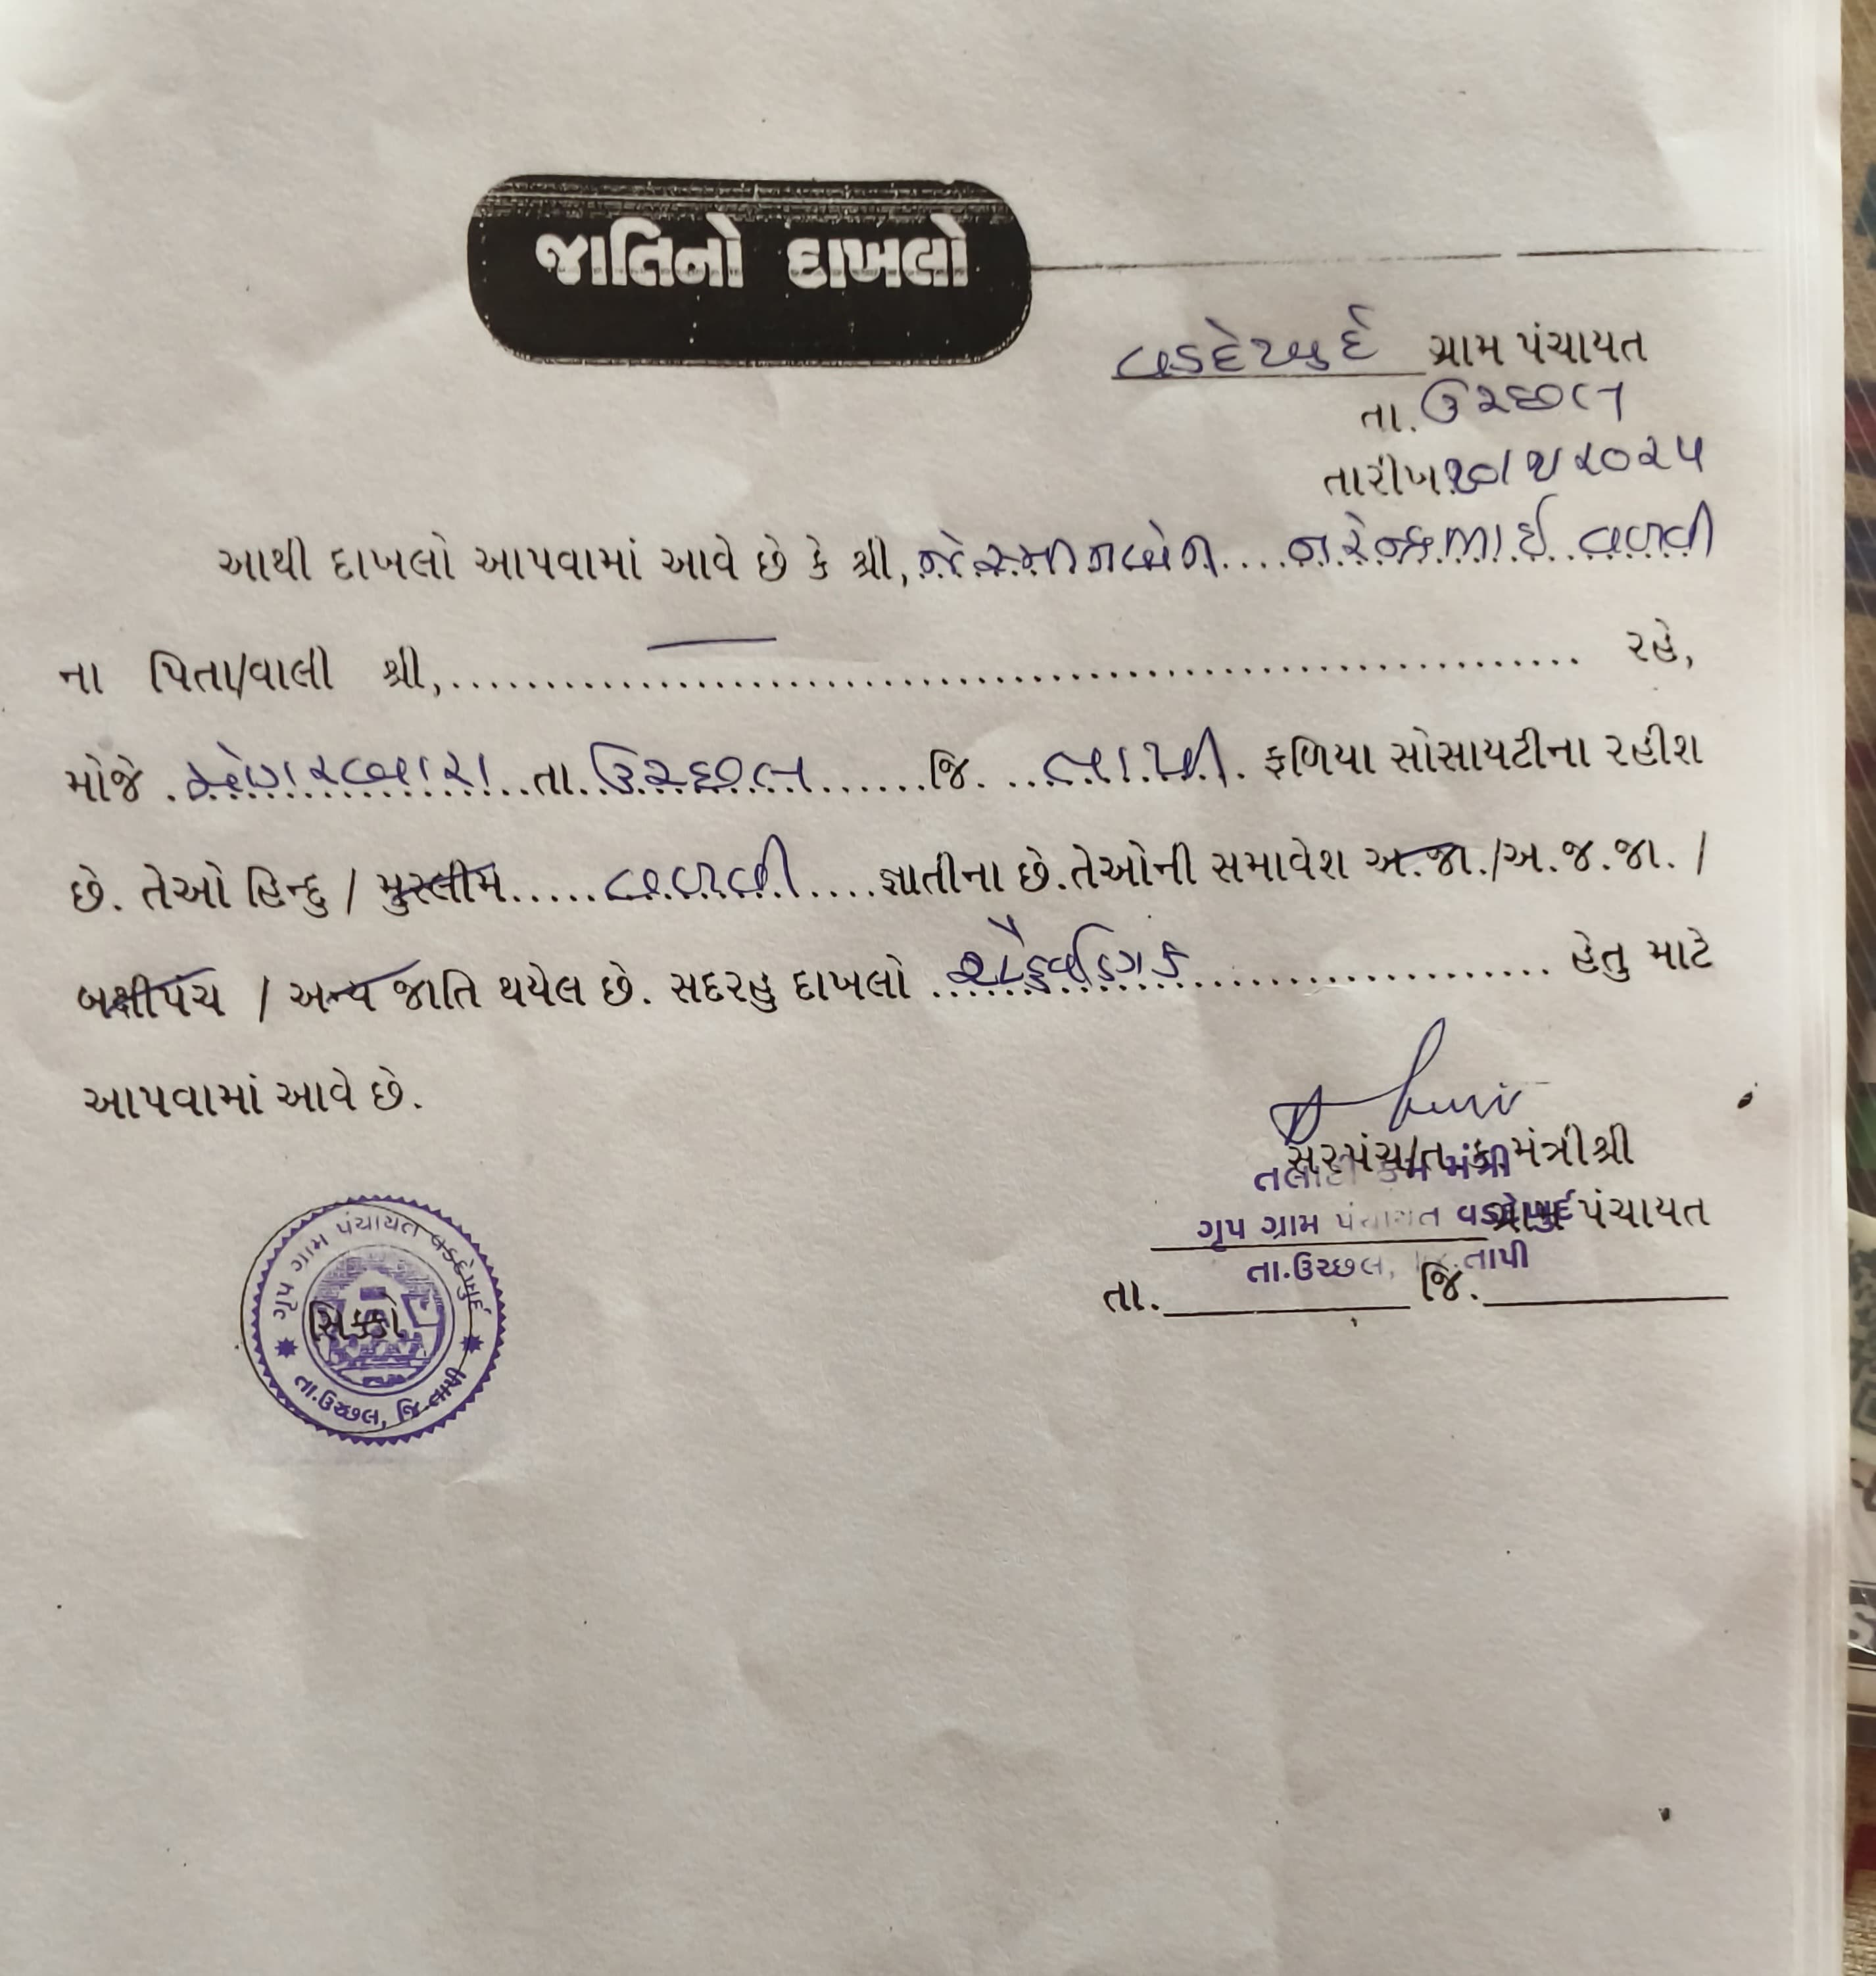 જાતિનો દાખલો
વડદેખુર્દ ગ્રામ પંચાયત
તા. ઉચ્છલ
તારીખ ૧૦/૧/૨૦૨૫
આથી દાખલો આપવામાં આવે છે કે શ્રી, જેસ્મીનાબેન.... નરેન્દ્રભાઈ વળવી
ના પિતા/વાલી શ્રી, — રહે,
મોજે તા. ઉચ્છલ જિ. તાપી. ફળિયા સોસાયટીના રહીશ
છે. તેઓ હિન્દુ / મુસ્લીમ..... વળવી ....જ્ઞાતીના છે.તેઓની સમાવેશ અ.જા./અ.જ.જા. /
બક્ષીપંચ / અન્ય જાતિ થયેલ છે. સદરહુ દાખલો શૈક્ષણિક હેતુ માટે
આપવામાં આવે છે.
સરપંચ/ત.ક.મંત્રીશ્રી
તલાટી કમ મંત્રી
ગૃપ ગ્રામ પંચાયત વડદેખુર્દ
ગ્રામ પંચાયત
તા.ઉચ્છલ, જિ.તાપી
તા. જિ.
ગૃપ ગ્રામ પંચાયત વડદેખુર્દ
સિક્કો
તા.ઉચ્છલ, જિ.તાપી